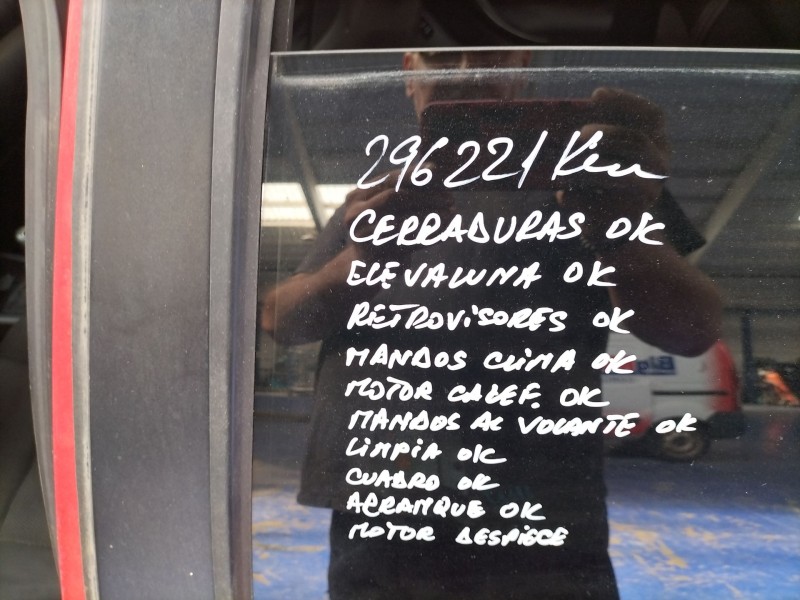 296221 Km
CERRADURAS OK
ELEVALUNA OK
RETROVISORES OK
MANDOS CLIMA OK
MOTOR CALEF. OK
MANDOS AL VOLANTE OK
LIMPIA OK
CUADRO OK
ARRANQUE OK
MOTOR DESPIECE